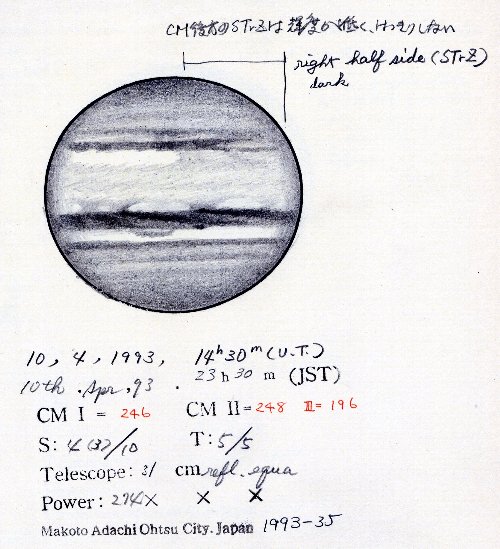 CM後方のSTrZは輝度が低く、はっきりしない
right half side (STrZ)
dark
10, 4, 1993, 14h30m (U.T.)
10th. Apr, 93. 23h30m (JST)
CM I = 246 CM II=248 Ⅲ=196
S: 4(3)/10 T: 5/5
Telescope: 31 cm refl. equa
Power: 274× × ×
Makoto Adachi Ohtsu City. Japan 1993-35